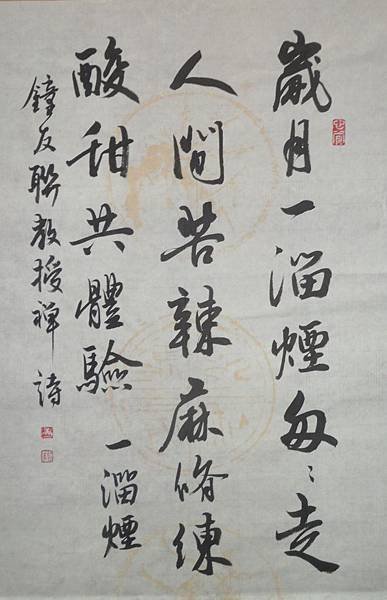 歲月一溜煙匆匆走
人間苦辣麻修練
酸甜共體驗
一溜煙
鐘友聯教授禪詩